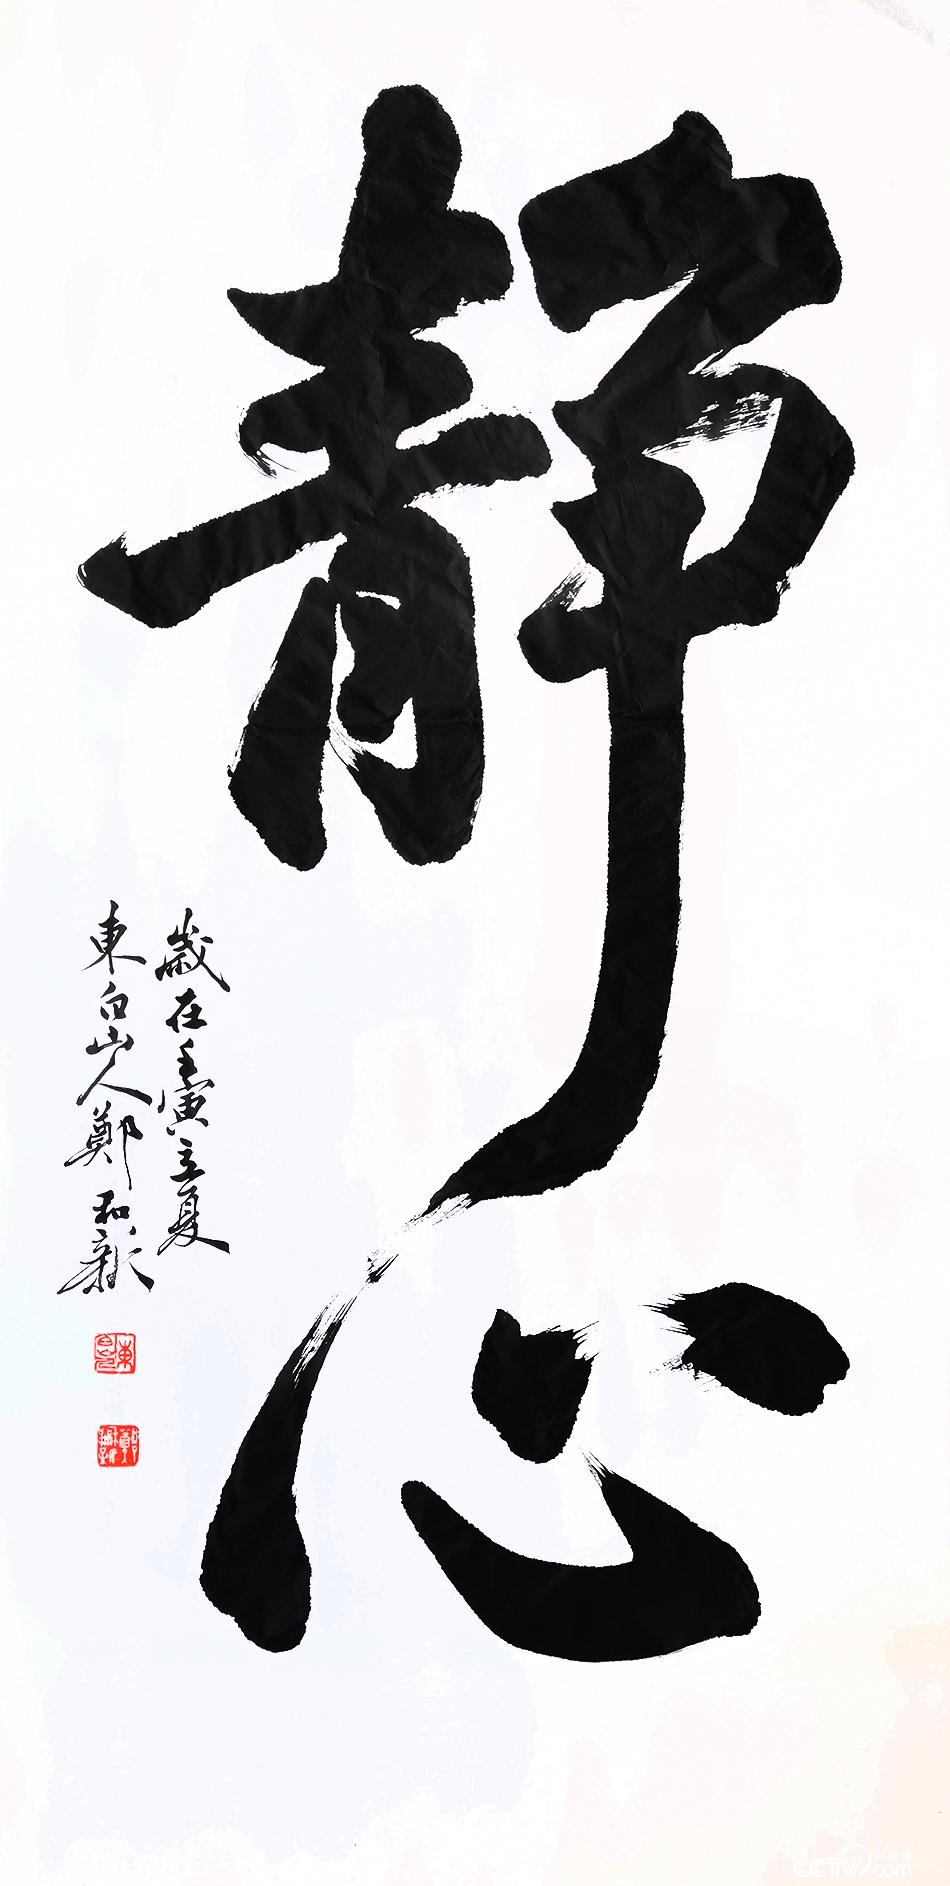 静心
歲在壬寅立夏
東白山人鄭和新
央视网
CCTV.com